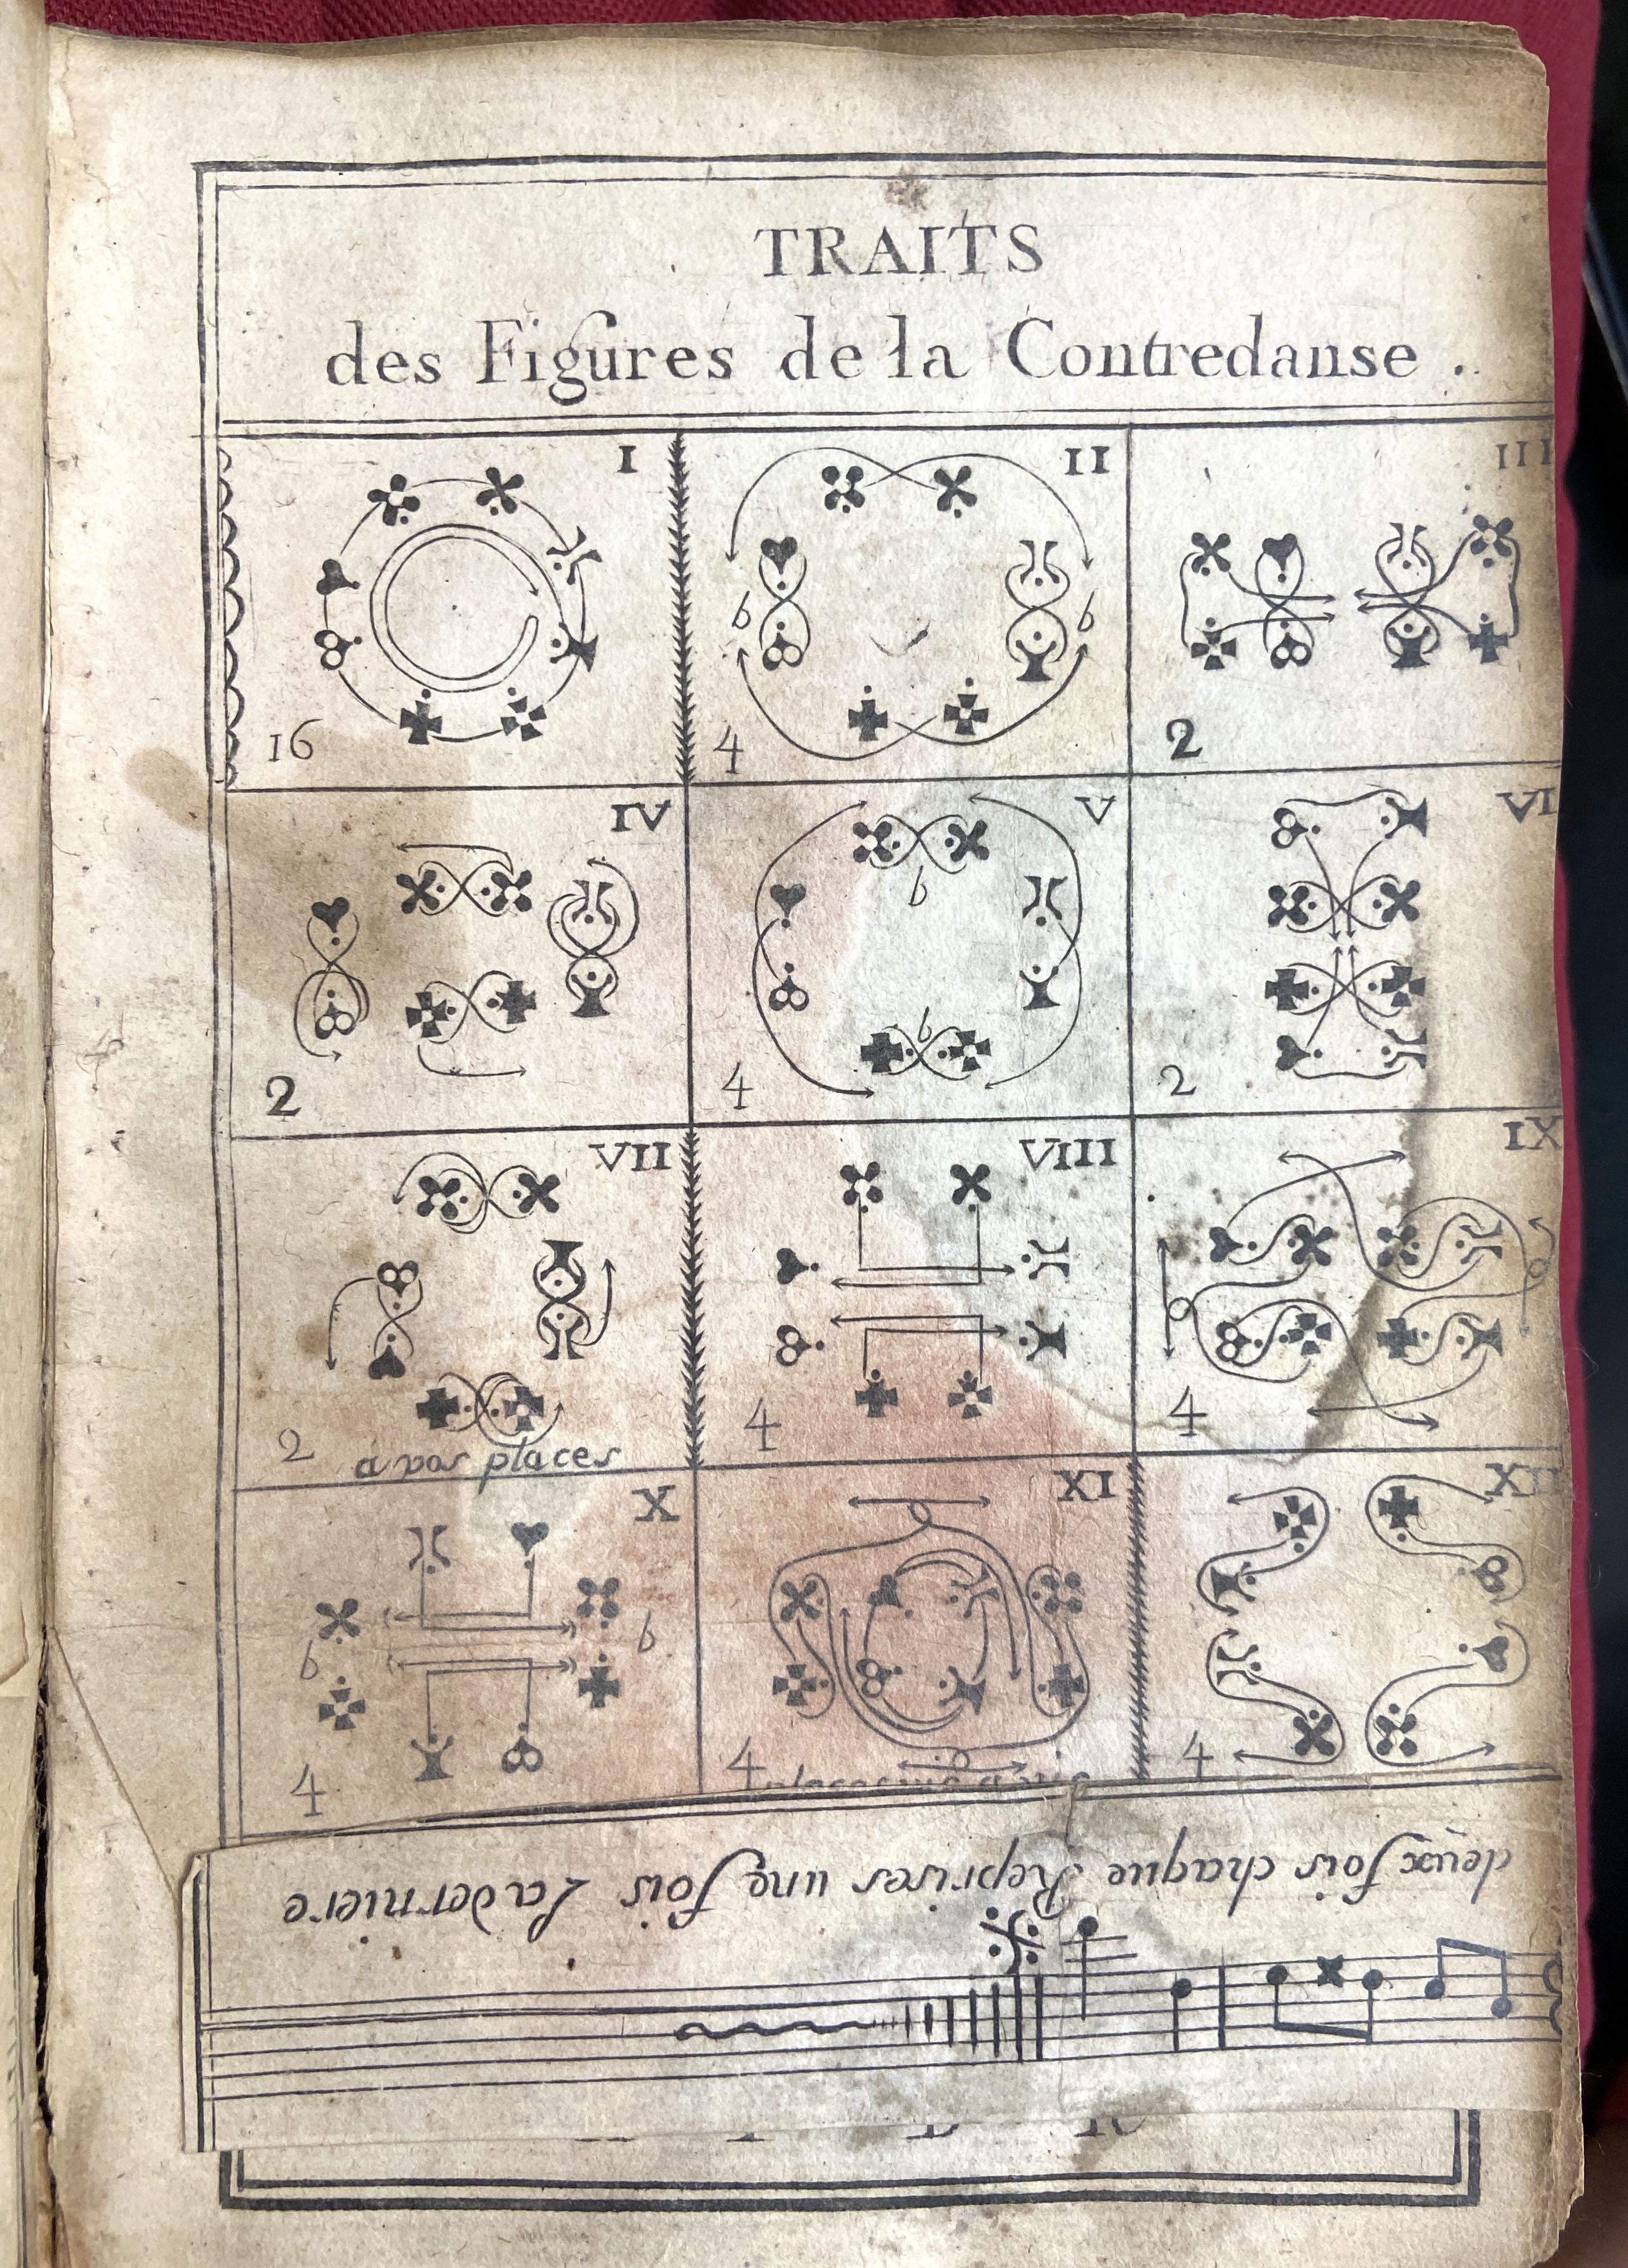 TRAITS
des Figures de la Contredanse .
I
16
II
b
b
4
III
2
IV
2
V
b
b
4
VI
2
VII
2
a vos places
VIII
4
IX
4
X
b
b
4
XI
4
XII
4
deux fois chaque Reprises une fois La derniere